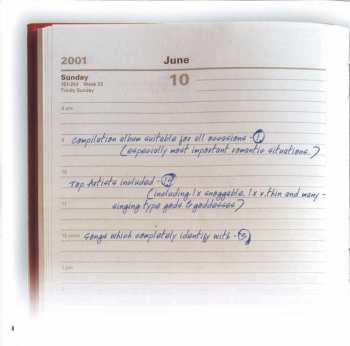 2001 June
Sunday 10
161-204 Week 23
Trinity Sunday
8 am
9 compilation album suitable for all occasions - 1
(especially most important romantic situations.)
10
Top Artists included -
(including 1x snoggable, 1x v. thin and many -
11 singing type gods & goddesses)
12 noon songs which completely identify with -
1 pm